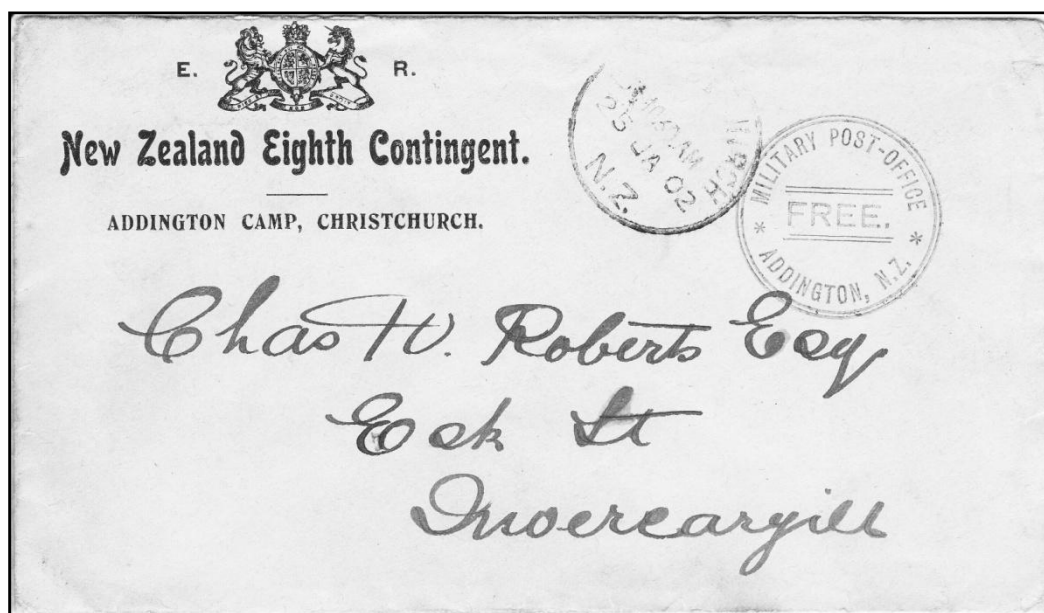 E. R.
New Zealand Eighth Contingent.
ADDINGTON CAMP, CHRISTCHURCH.
25 JA 02
N.Z.
MILITARY POST-OFFICE
FREE.
* ADDINGTON, N.Z. *
Chas W. Roberts Esq
Esk St
Invercargill